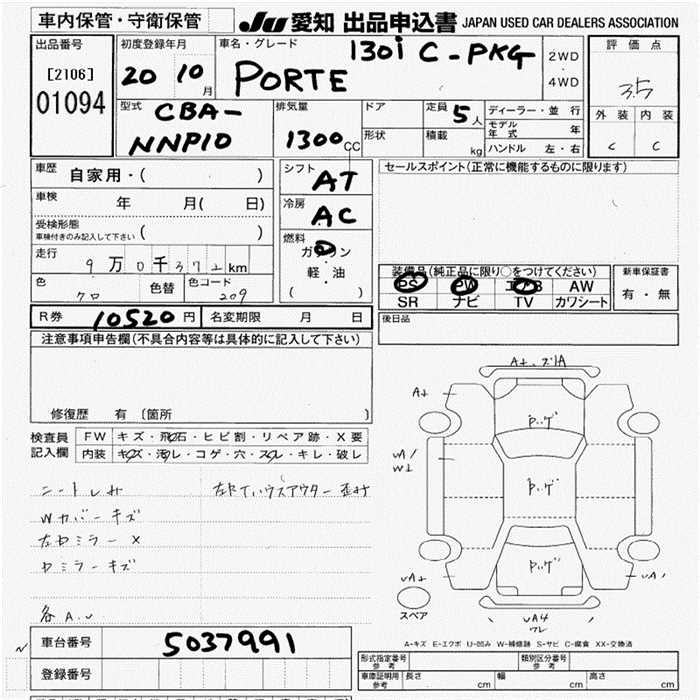 車内保管・守衛保管
JU 愛知 出品申込書 JAPAN USED CAR DEALERS ASSOCIATION
出品番号
[2106]
01094
初度登録年月
20 10月
車名・グレード
130i C-PKG
PORTE
2WD
・
4WD
評価点
3.5
外装 内装
C C
型式
CBA-
NNP10
排気量
1300CC
ドア
形状
定員 5人
積載 kg
ディーラー・並行
モデル年式 年
ハンドル 左・右
車歴 自家用・( )
車検 年 月( 日)
受検形態
車検付きのみ記入して下さい ( )
走行 9万0千372km
色 クロ 色替 色コード 209
シフト AT
冷房 AC
燃料
ガソリン
・
軽・油
( )
セールスポイント(正常に機能するものに限ります)
装備品(純正品に限り○をつけてください)
PS PW エアB AW
SR ナビ TV カワシート
新車保証書
有・無
R券 10520円 名変期限 月 日
後日品
注意事項申告欄(不具合内容等は具体的に記入して下さい)
修復歴 有 〔箇所 〕
検査員記入欄
FW キズ・飛石・ヒビ割・リペア跡・X要
内装 キズ・汚レ・コゲ・穴・スレ・キレ・破レ
Wカバーキズ
左右ミラーX
右ミラーキズ
各A.U
A+
スペア
A-キズ E-エクボ U-凹み W-補修跡 S-サビ C-腐食 XX-交換済
車台番号 5037991
登録番号
形式指定番号 参考
類別区分番号 参考
車庫証明用 参考 長さ cm 幅 cm 高さ cm